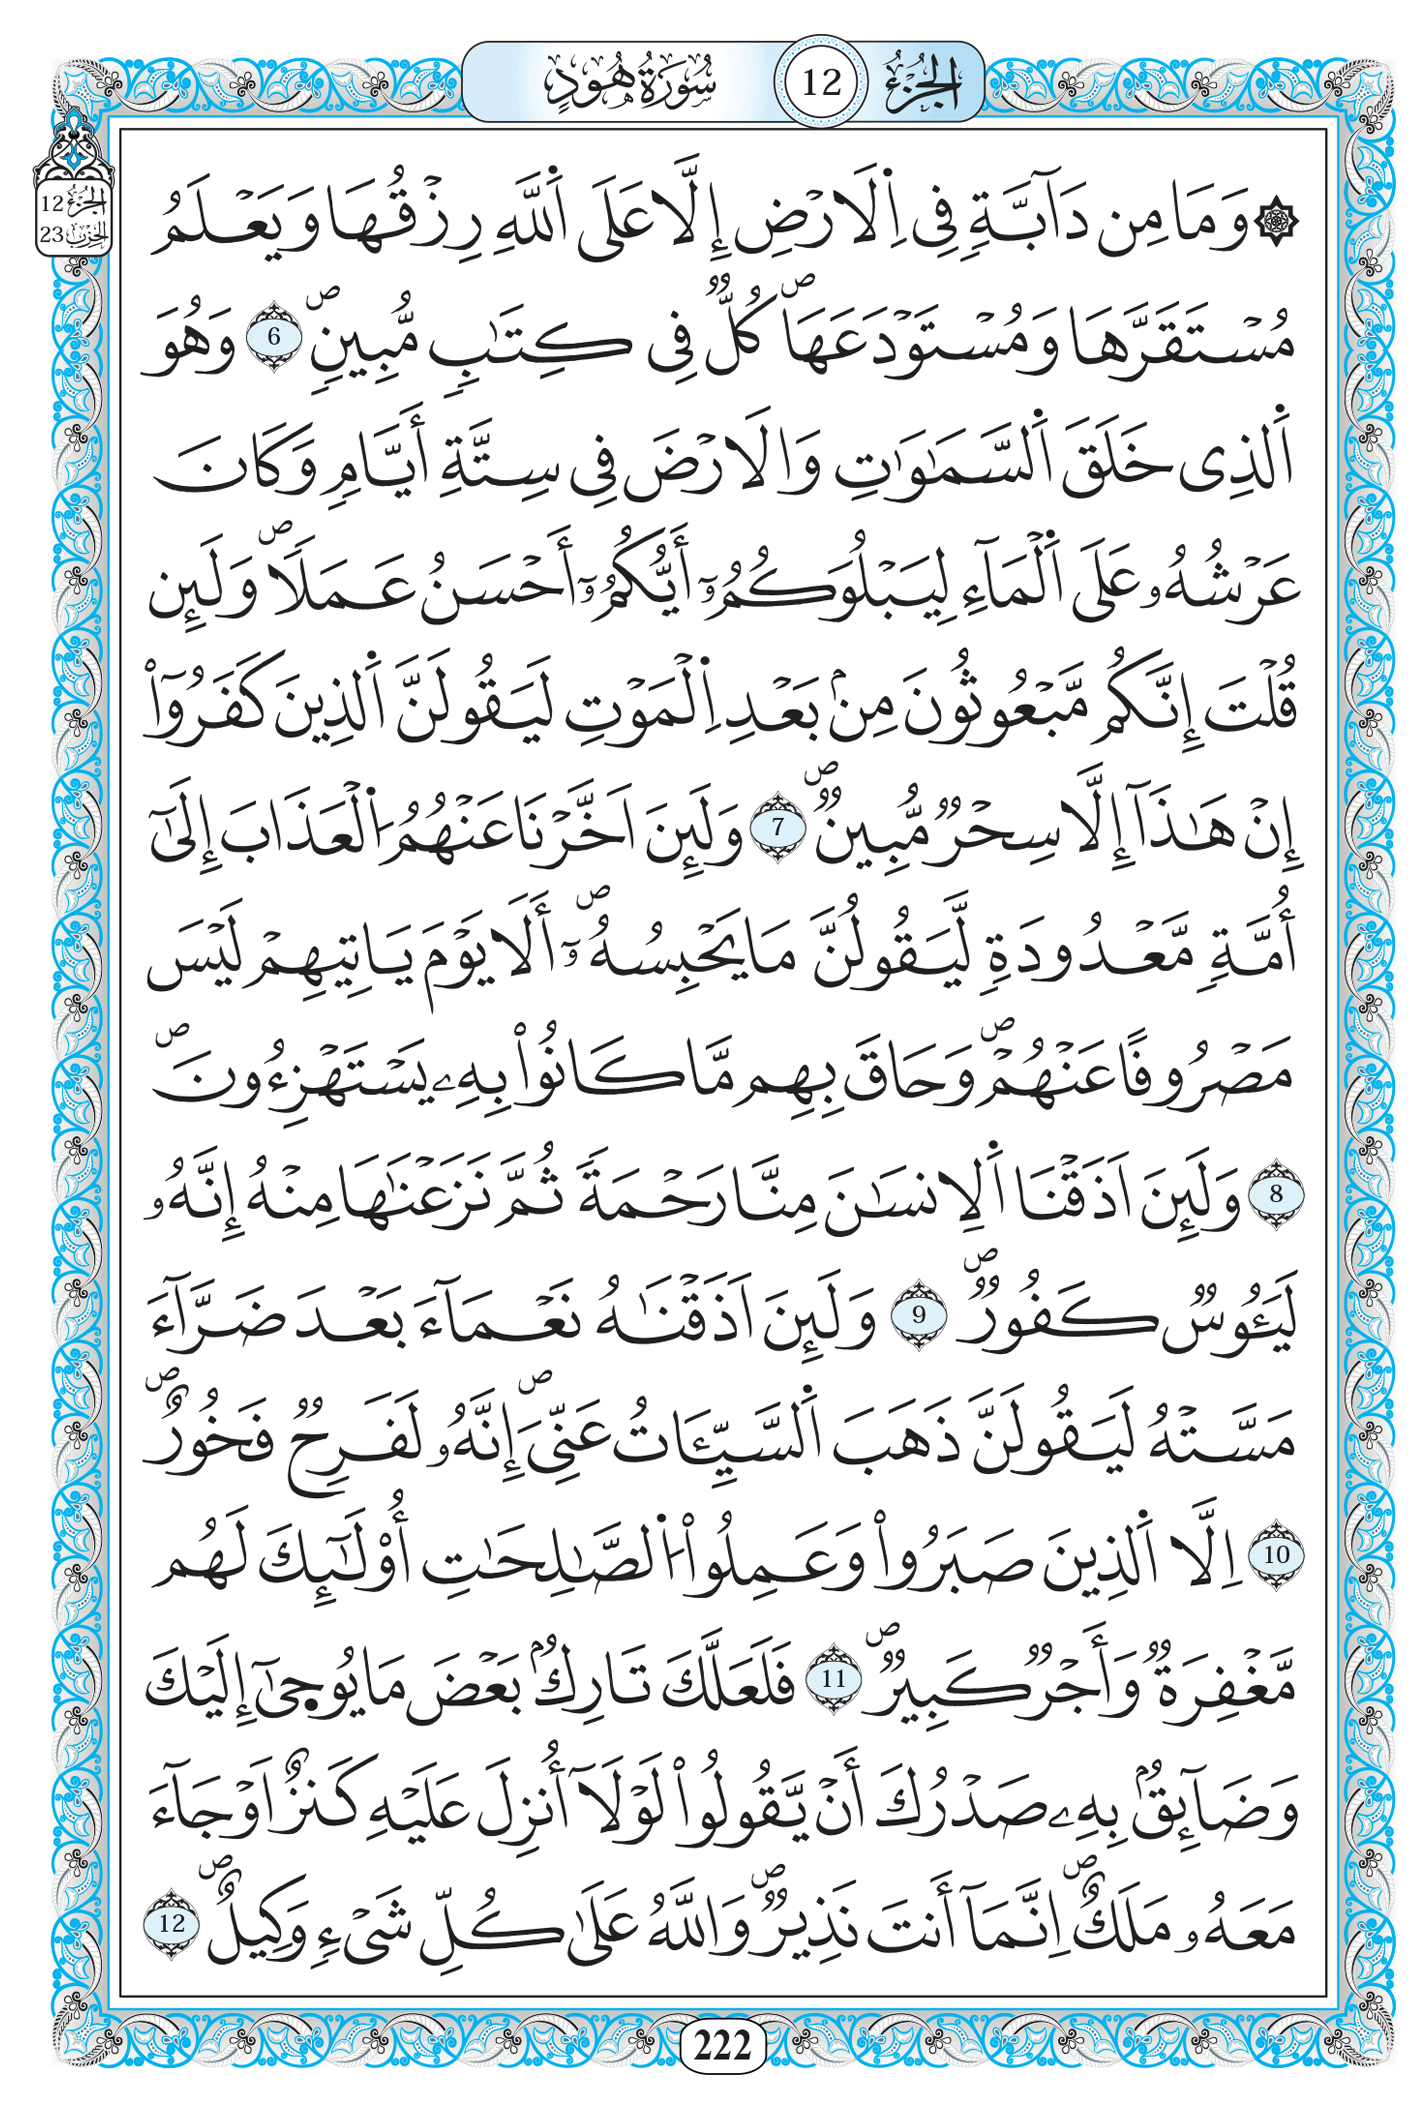 الجزء 12 سورة هود
الجزء 12
الحزب 23
۞ وَمَا مِن دَآبَّةٖ فِي اِ۬لَارْضِ إِلَّا عَلَي اَ۬للَّهِ رِزْقُهَا وَيَعْلَمُ
مُسْتَقَرَّهَا وَمُسْتَوْدَعَهَاۖ كُلّٞ فِي كِتَٰبٖ مُّبِينٖۖ 6 وَهُوَ
اَ۬لذِي خَلَقَ اَ۬لسَّمَٰوَٰتِ وَالَارْضَ فِي سِتَّةِ أَيَّامٖ وَكَانَ
عَرْشُهُۥ عَلَي اَ۬لْمَآءِ لِيَبْلُوَكُمُۥٓ أَيُّكُمُۥٓ أَحْسَنُ عَمَلاٗۖ وَلَئِن
قُلْتَ إِنَّكُم مَّبْعُوثُونَ مِنۢ بَعْدِ اِ۬لْمَوْتِ لَيَقُولَنَّ اَ۬لذِينَ كَفَرُوٓاْ
إِنْ هَٰذَآ إِلَّا سِحْرٞ مُّبِينٞۖ 7 وَلَئِنَ اَخَّرْنَا عَنْهُمُ اُ۬لْعَذَابَ إِلَيٰٓ
أُمَّةٖ مَّعْدُودَةٖ لَّيَقُولُنَّ مَا يَحْبِسُهُۥٓۖ أَلَا يَوْمَ يَاتِيهِمْ لَيْسَ
مَصْرُوفاً عَنْهُمْۖ وَحَاقَ بِهِم مَّا كَانُواْ بِهِۦ يَسْتَهْزِءُونَۖ
8 وَلَئِنَ اَذَقْنَا اَ۬لِانسَٰنَ مِنَّا رَحْمَةٗ ثُمَّ نَزَعْنَٰهَا مِنْهُ إِنَّهُۥ
لَيَـُٔوسٞ كَفُورٞۖ 9 وَلَئِنَ اَذَقْنَٰهُ نَعْمَآءَ بَعْدَ ضَرَّآءَ
مَسَّتْهُ لَيَقُولَنَّ ذَهَبَ اَ۬لسَّيِّـَٔاتُ عَنِّيَۖ إِنَّهُۥ لَفَرِحٞ فَخُورٌۖ
10 اِلَّا اَ۬لذِينَ صَبَرُواْ وَعَمِلُواْ اُ۬لصَّٰلِحَٰتِ أُوْلَٰٓئِكَ لَهُم
مَّغْفِرَةٞ وَأَجْرٞ كَبِيرٞۖ 11 فَلَعَلَّكَ تَارِكُۢ بَعْضَ مَا يُوحَيٰٓ إِلَيْكَ
وَضَآئِقُۢ بِهِۦ صَدْرُكَ أَنْ يَّقُولُواْ لَوْلَآ أُنزِلَ عَلَيْهِ كَنزٌ اَوْ جَآءَ
مَعَهُۥ مَلَكٌۖ اِنَّمَآ أَنتَ نَذِيرٞۖ وَاللَّهُ عَلَيٰ كُلِّ شَيْءٖ وَكِيلٌۖ 12
222